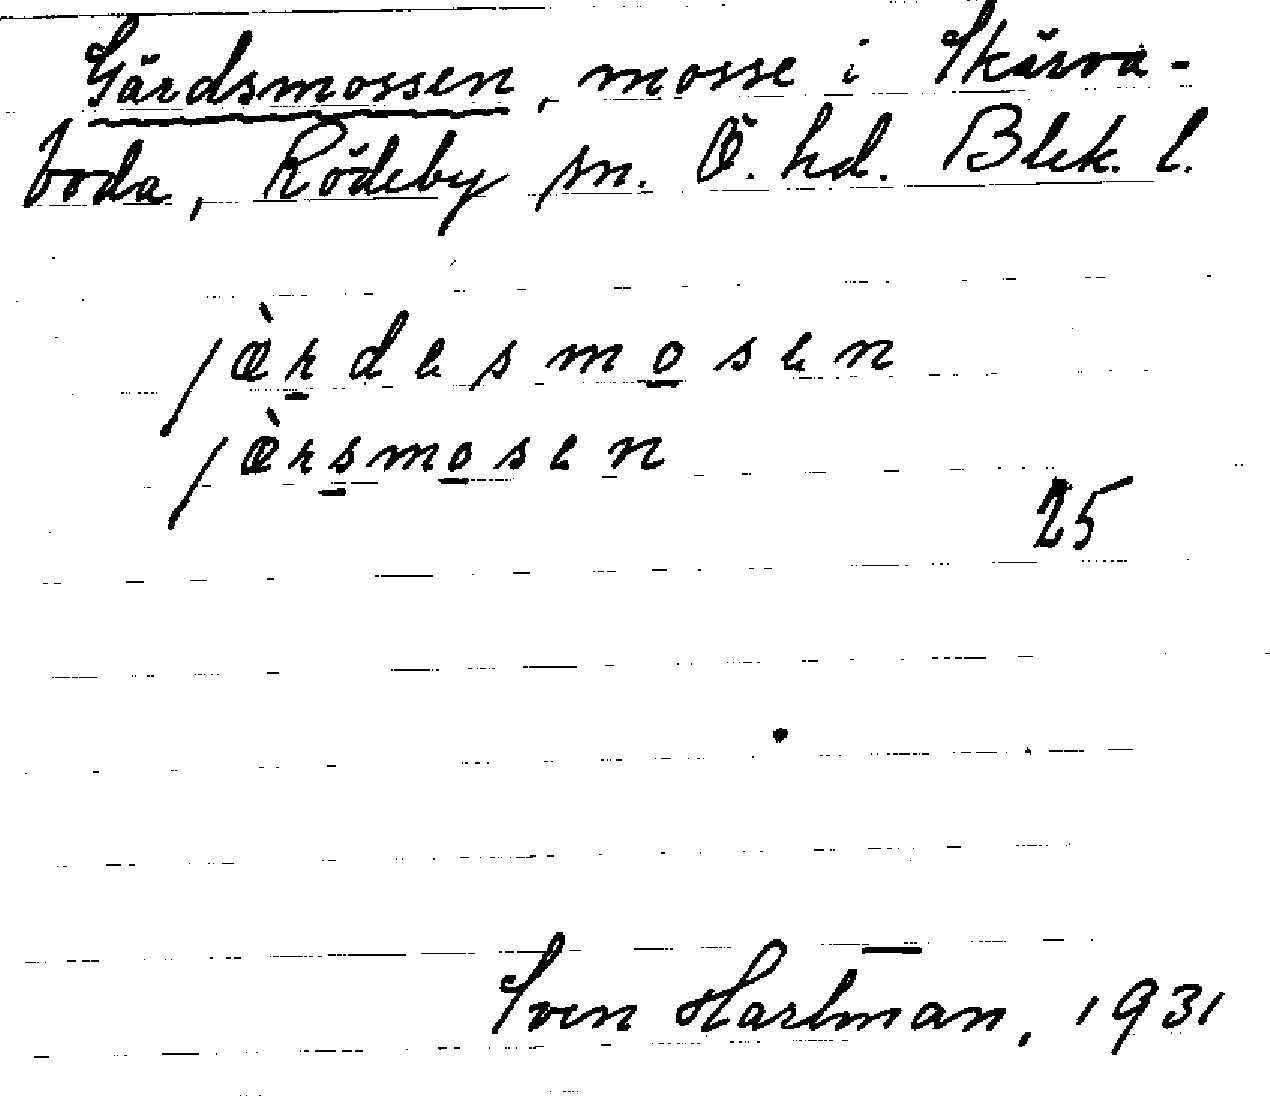 Gärdsmossen, mosse i Skärva-
boda, Rödeby sn. Ö. hd. Blek. l.
jæ̀rdesmosen
jæ̀rsmosen
25
Sven Hartman, 1931